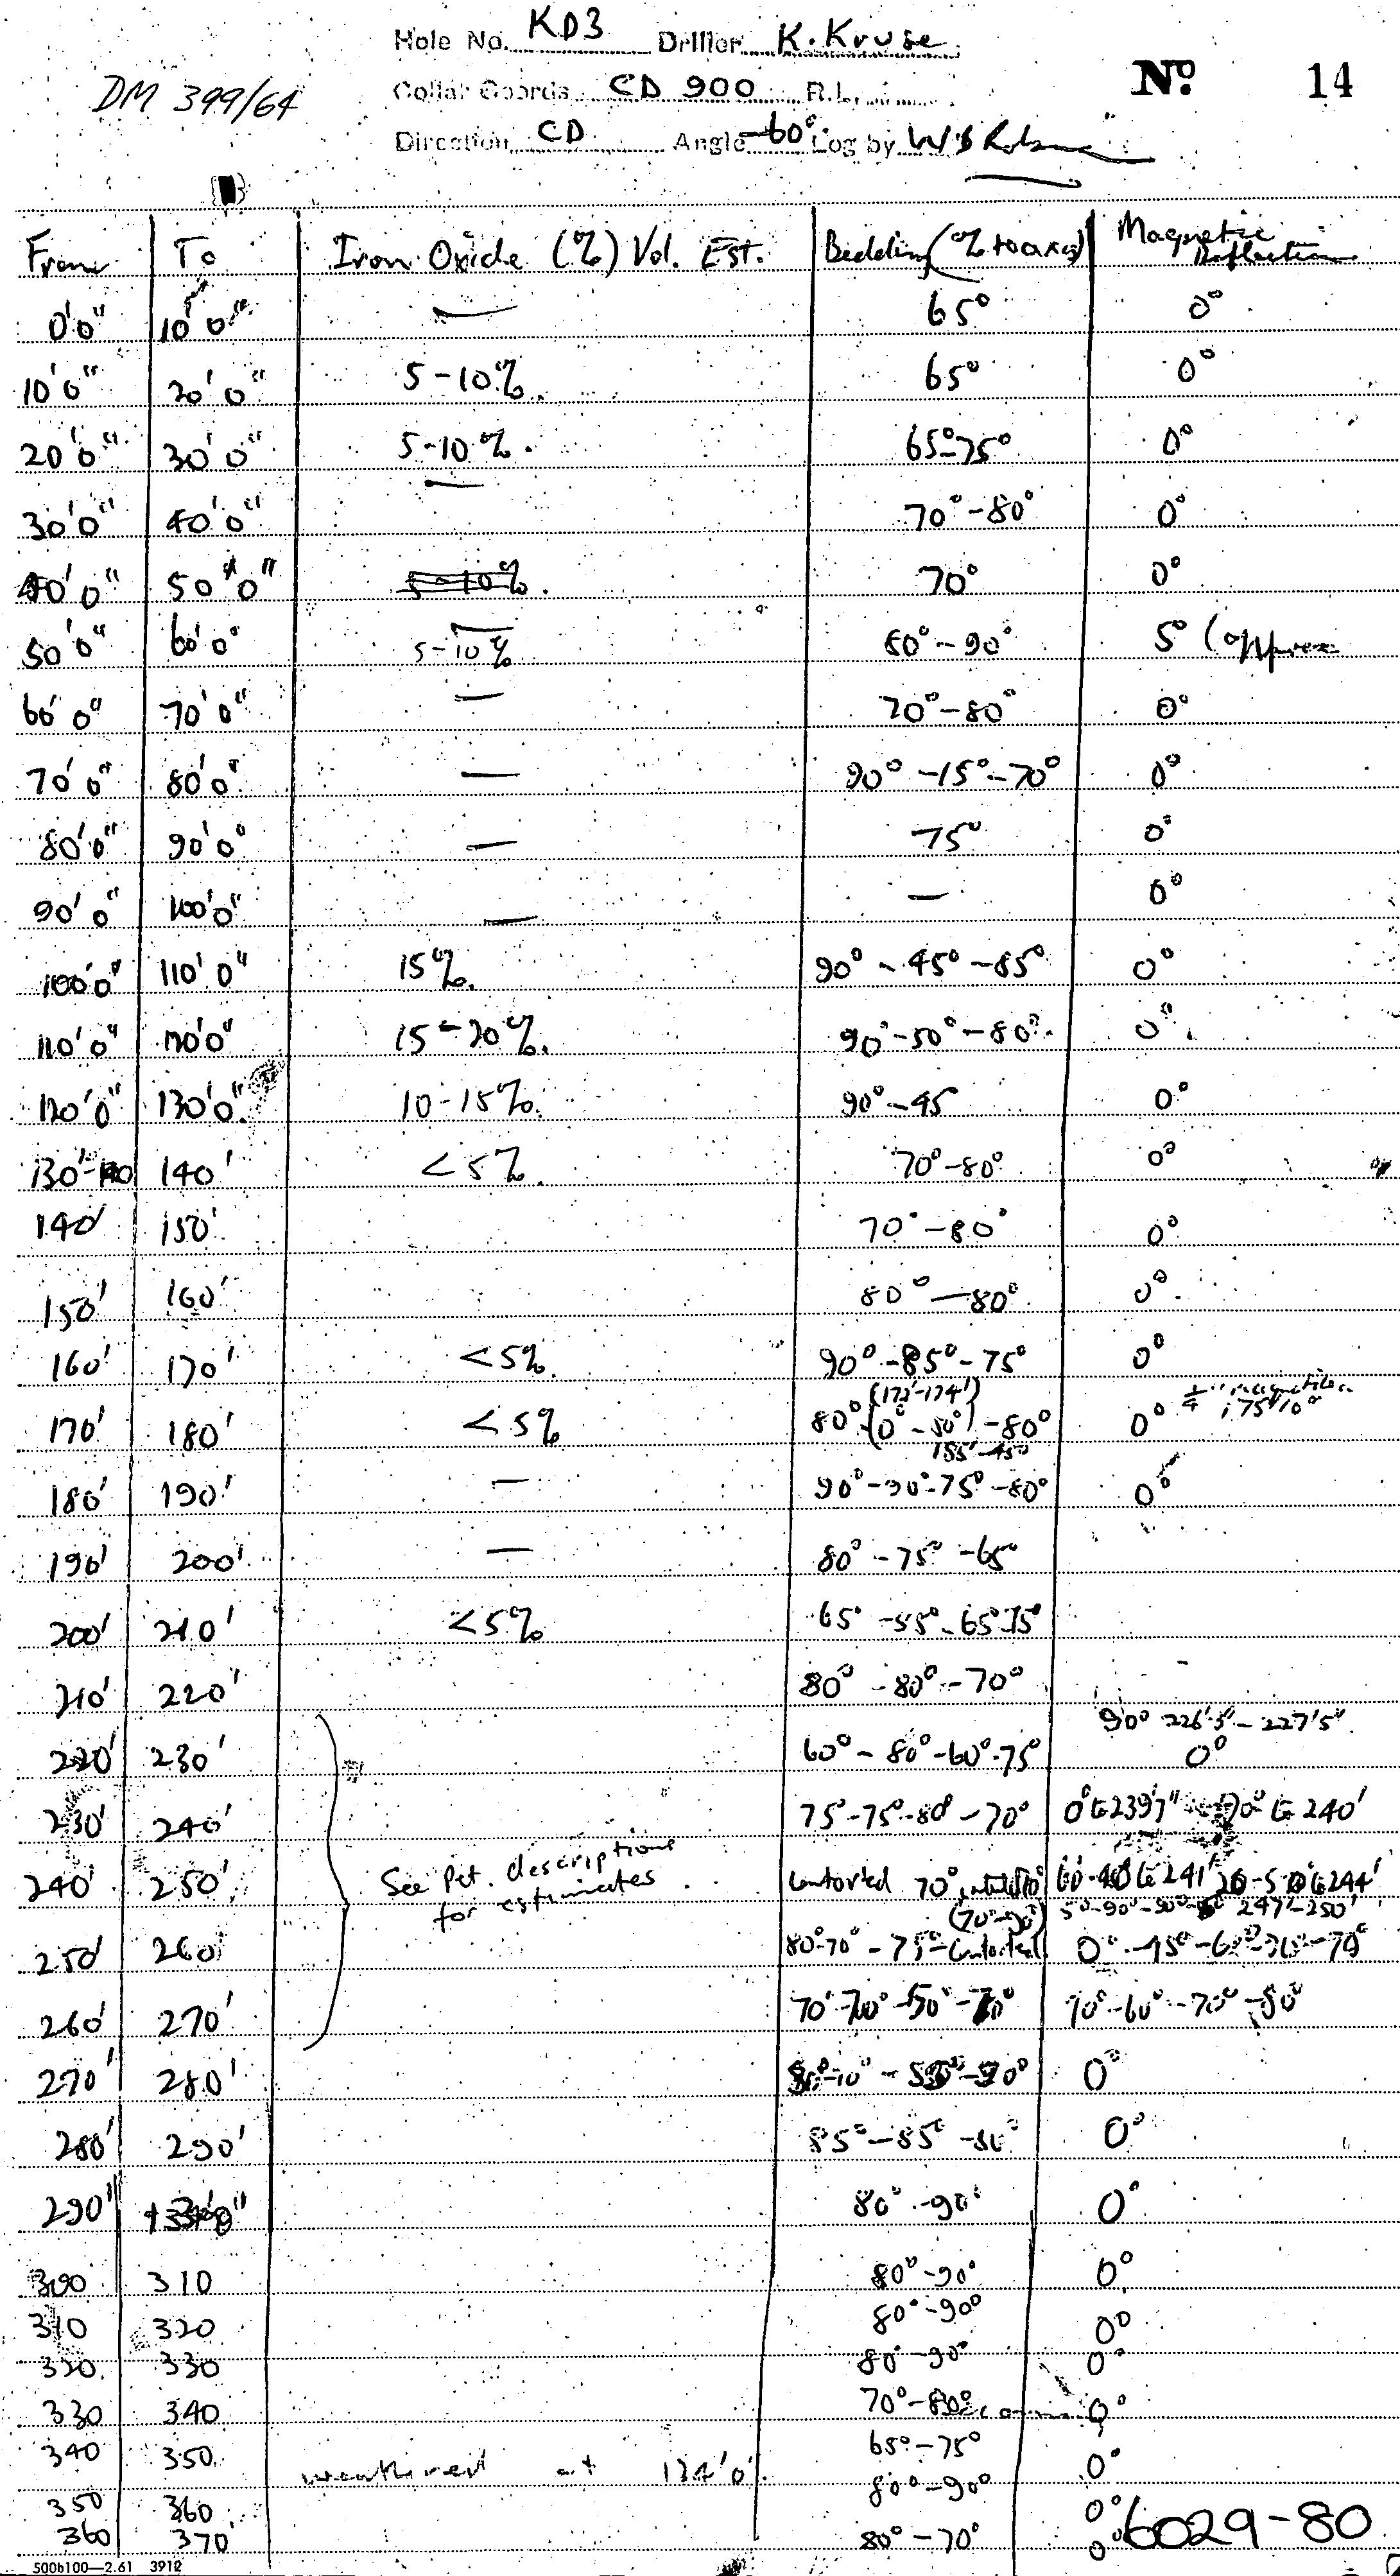 Hole No. KD3 Driller K. Kruse
DM 399/64
Collar Coords CD 900 R.L.
No. 14
Direction CD Angle -60° Log by
From To Iron Oxide (%) Vol. Est. Bedding (% to axis) Magnetic Deflection
0'0" 10'0" — 65° 0°
10'0" 20'0" 5-10%. 65° 0°
20'0" 30'0" 5-10%. 65°-75° 0°
30'0" 40'0" — 70°-80° 0°
40'0" 50'0" 5-10%. 70° 0°
50'0" 60'0" 5-10% 80°-90° 5° (approx
60'0" 70'0" — 70°-80° 0°
70'0" 80'0" — 90°-15°-70° 0°
80'0" 90'0" — 75° 0°
90'0" 100'0" — — 0°
100'0" 110'0" 15%. 90°-45°-85° 0°
110'0" 120'0" 15-20%. 90°-50°-80° 0°
120'0" 130'0" 10-15%. 90°-45 0°
130' 140' <5%. 70°-80° 0°
140' 150' 70°-80° 0°
150' 160' 80°-80° 0°
160' 170' <5% 90°-85°-75° 0°
170' 180' <5% 80° (0°-50°)-80° 0°
180' 190' — 90°-90°-75°-80° 0°
190' 200' — 80°-75°-65°
200' 210' <5% 65°-55°-65°75°
210' 220' 80°-80°-70°
90° 226'3"-227'5"
220' 230' 60°-80°-60°-75° 0°
230' 240' 75°-75°-80°-70° 0° to 239'7" to 240'
See Pet. descriptions
for estimates
240' 250' Contorted 70°
247'-250'
250' 260' 80°-70°-75°-Contorted 0°-45°
260' 270' 70°-60°-70°-80°
270' 280' 0°
280' 290' 85°-85° 0°
290' 80°-90° 0°
300 310 80°-90° 0°
310 320 80°-90° 0°
320 330 80°-90° 0°
330 340 70°-80° 0°
340 350 65°-75° 0°
weathered at 134'0"
350 360 80°-90° 0°
360 370 80°-70° 0°
6029-80
500b100—2.61 3912